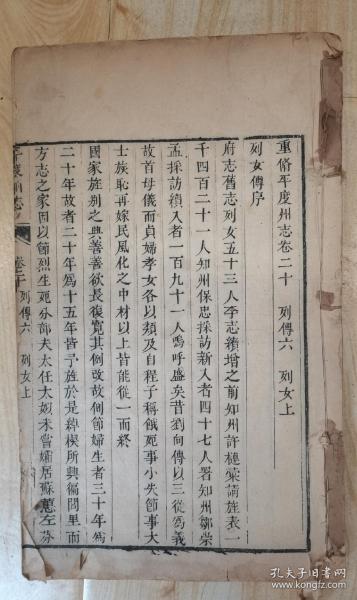 重脩平度州志卷二十　列傳六　列女上
列女傳序
府志舊志列女五十三人李志續增之前知州許槤彙請旌表一
千四百二十一人知州保忠採訪新入者四十七人署知州鄒崇
孟採訪續入者一百九十一人嗚呼盛矣昔劉向傳以三從爲義
故首母儀而貞婦孝女各以類及自程子稱餓死事小失節事大
士族恥再嫁民風化之中材以上皆能從一而終
國家旌别之典善善欲長復寬其例改故例節婦生者三十年爲
二十年故者二十年爲十五年皆予旌於是綽楔所興徧閭里而
方志之家因以節烈生死分部夫太任大姒未嘗孀居蘇蕙左芬
平度州志
卷二十　列傳六　列女上
孔夫子旧书网